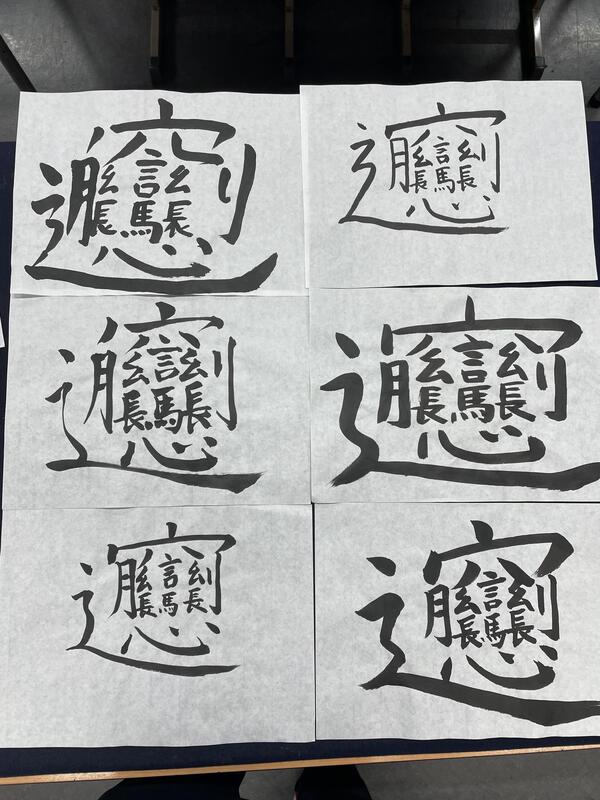 𰻞
𰻞
𰻞
𰻞
𰻞
𰻞